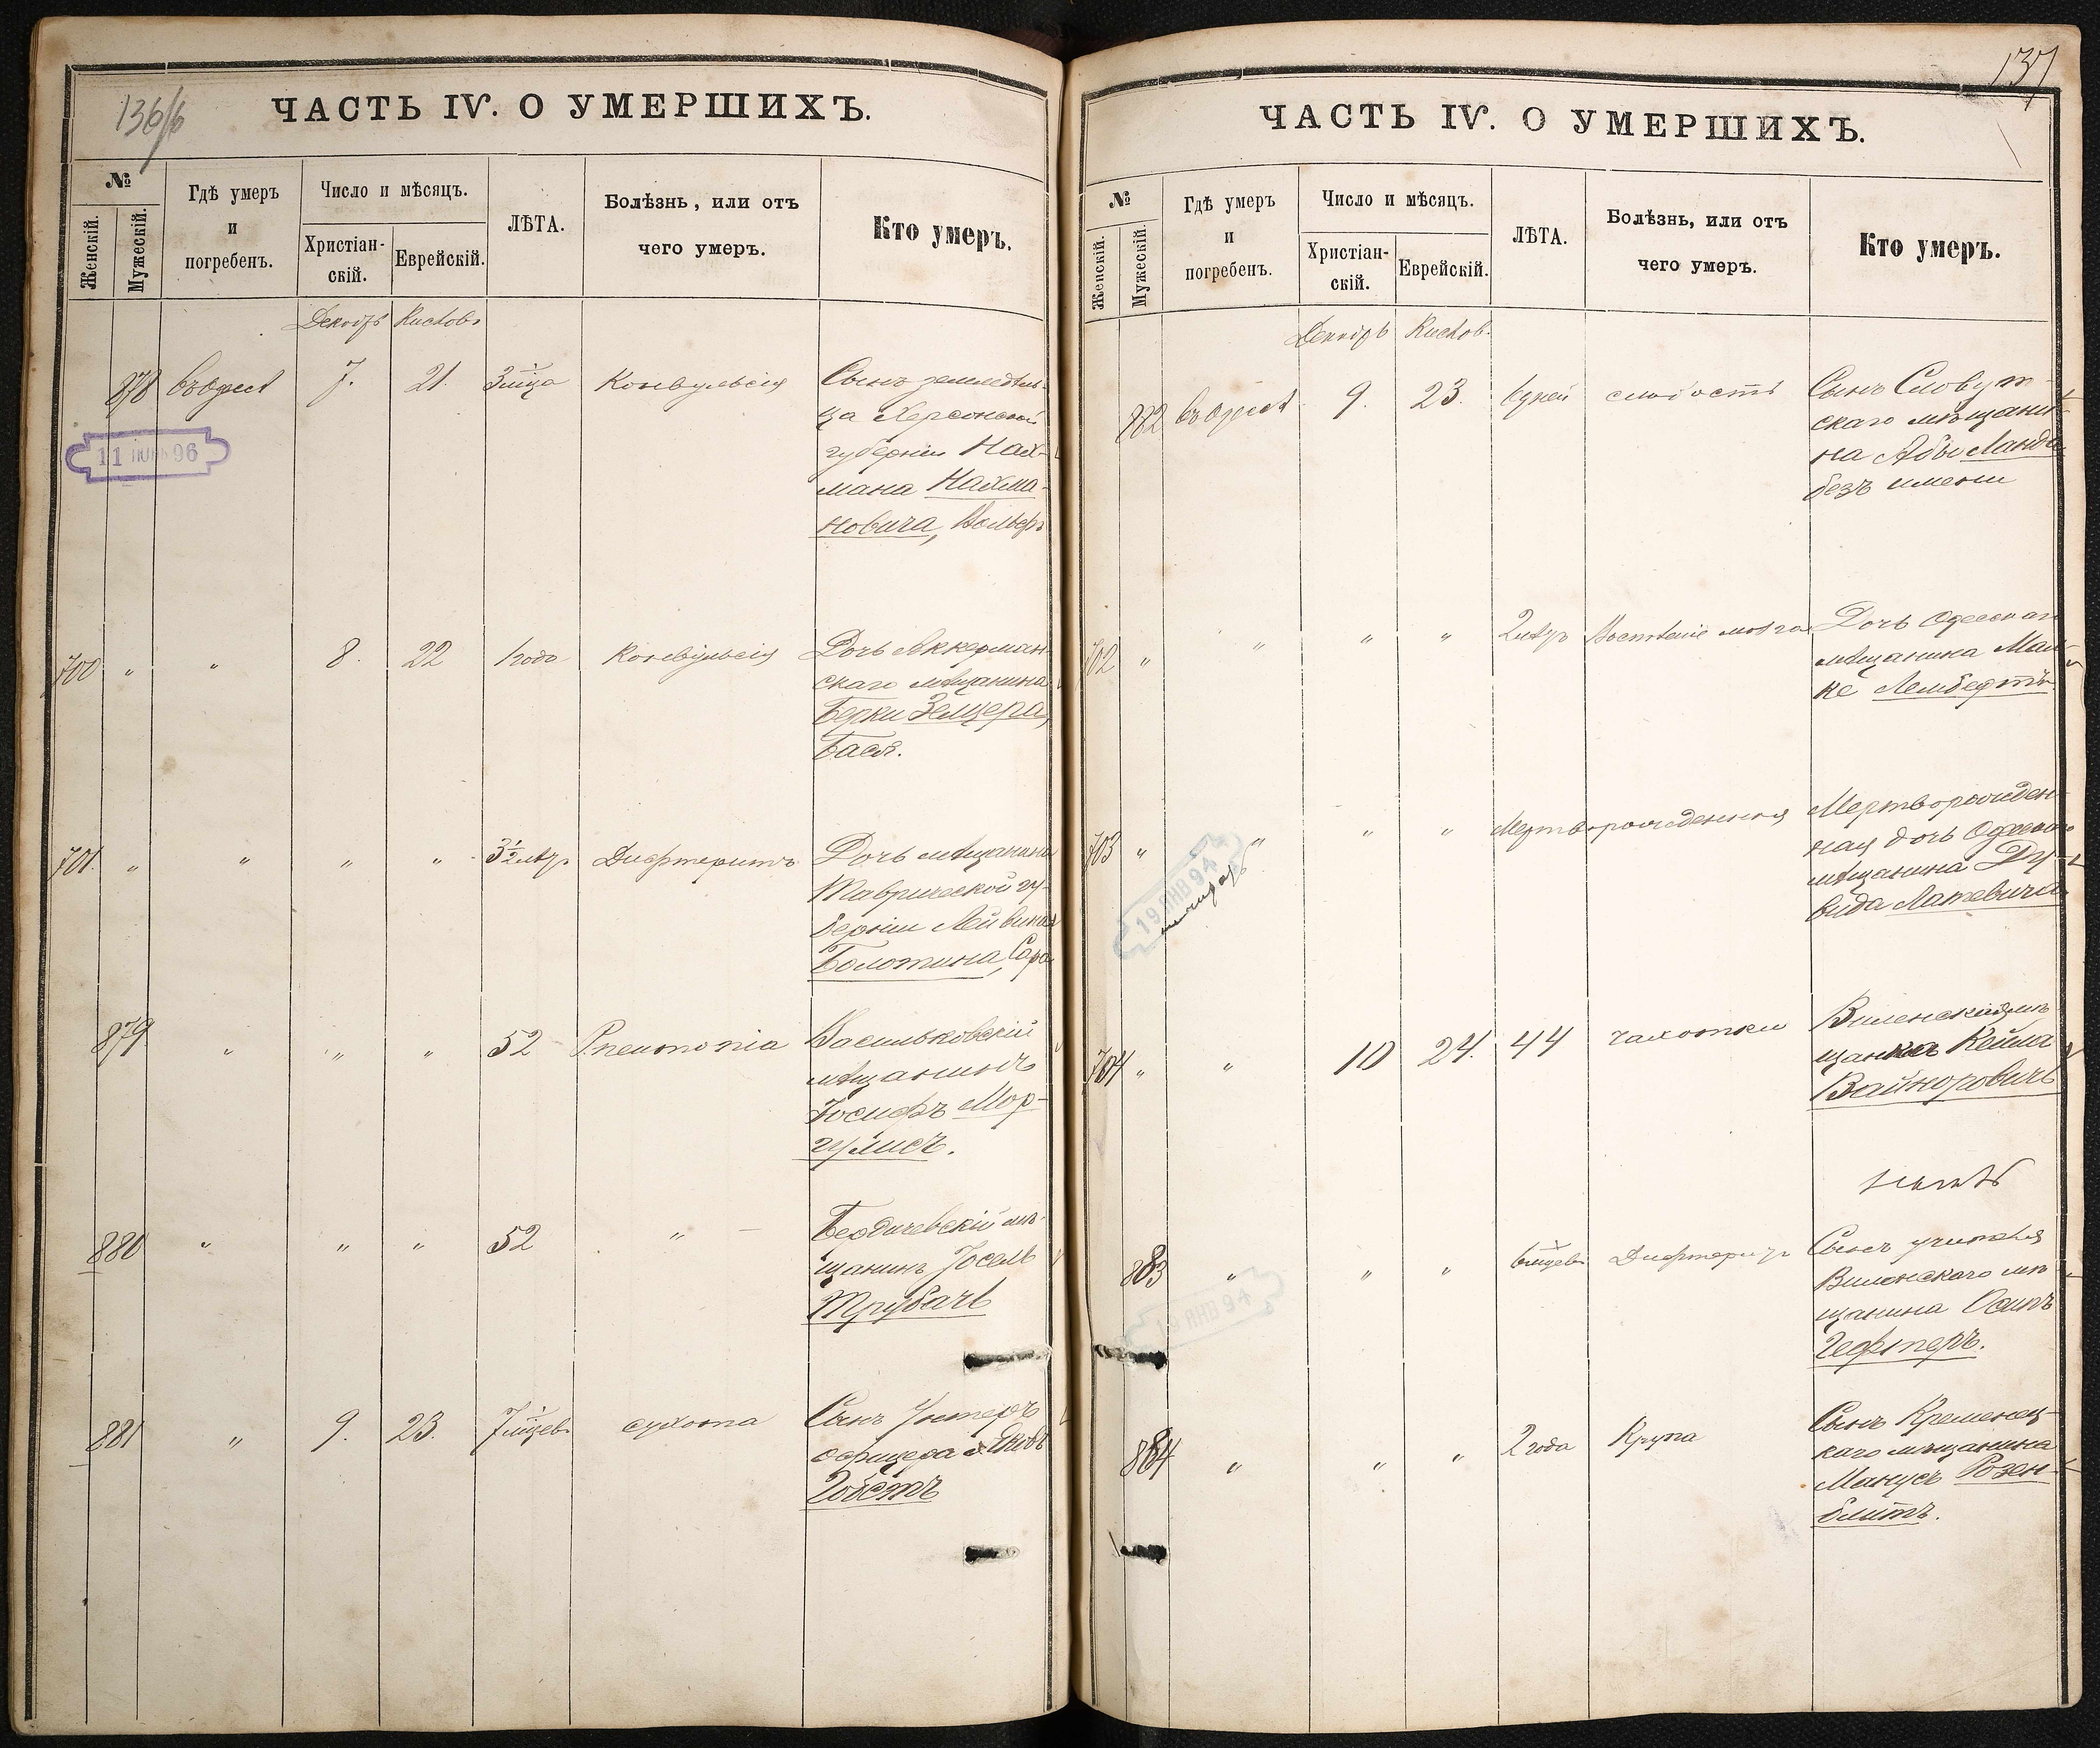 136/б
ЧАСТЬ IV. О УМЕРШИХЪ.
№
Женскій.
Мужескій.
Гдѣ умеръ
и
погребенъ.
Число и мѣсяцъ.
Христіан-
скій.
Еврейскій.
ЛѢТА.
Болѣзнь, или отъ
чего умеръ.
Кто умеръ.
Декабрь Кислов.
878 въ Одессѣ 7. 21. 3 м-ца Конвульсія Сынъ земледѣль-
ца Херсонской
губерніи Нах-
мана Нахма-
новича, Вольфъ
11 ИЮН 96
700 " " 8. 22 1 года Конвульсія Дочь Аккерман-
скаго мѣщанина
Берки Зелцера,
Бася.
701. " " " " 3½ лѣтъ Дифтеритъ Дочь мѣщанина
Таврической гу-
берніи Лейвика
Болотина, Сара
879 " " " 52 Pneumonia Васильковскій
мѣщанинъ
Іосифъ Мор-
гулисъ.
880 " " " 52 " Бердичевскій мѣ-
щанинъ Іосель
Трубачъ
881 " 9. 23. 7 м-цевъ сухота Сынъ Унтеръ
офицера Яковъ
137
ЧАСТЬ IV. О УМЕРШИХЪ.
№
Женскій.
Мужескій.
Гдѣ умеръ
и
погребенъ.
Число и мѣсяцъ.
Христіан-
скій.
Еврейскій.
ЛѢТА.
Болѣзнь, или отъ
чего умеръ.
Кто умеръ.
Декабрь Кислов.
882 въ Одессѣ 9. 23. 6 дней слабость Сынъ Славут-
скаго мѣщани-
на Абы Ланда
безъ имени
702 " " " " 2 лѣтъ Воспаленіе мозга Дочь Одесскаго
мѣщанина
703 " " " " Мертворожденная Мертворожден-
ная дочь Одесскаго
мѣщанина Ду-
вида Латевича
19 ЯНВ 94
704 " " 10 24. 44 чахотки Виленская мѣ-
щанка Кейла
Вайноровичъ
883 " " " 6 м-цевъ Дифтеритъ Сынъ учителя
Виленскаго мѣ-
щанина Осипъ
Гефтеръ.
19 ЯНВ 94
884 " " " 2 года Крупа Сынъ Кременец-
каго мѣщанина
Манусъ Розен-
блитъ.